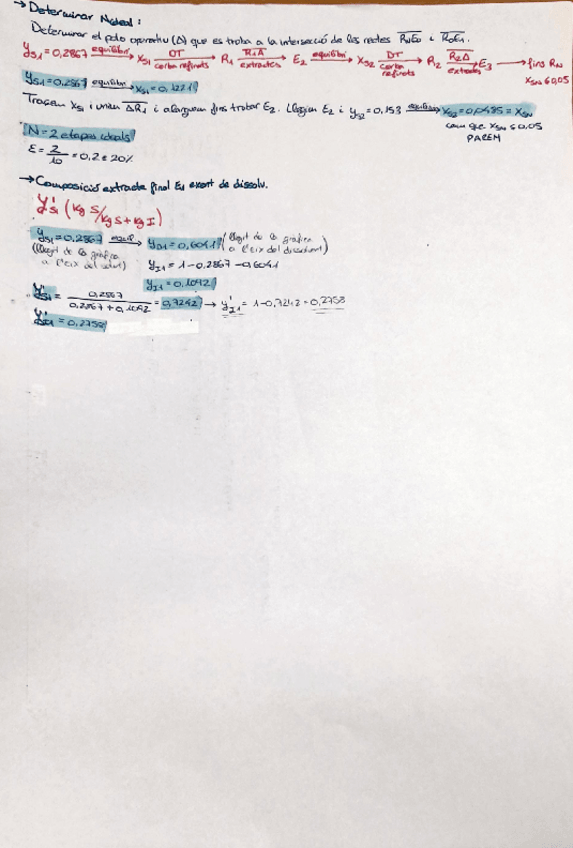 → Determinar Nideal:
Determinar el polo operatiu (Δ) que es troba a la intersecció de les rectes RNE0 i R0E1.
yS1=0,2867 equilibri → xS1 DT corba refinats → R1 R1Δ extractes → E2 equilibri → xS2 DT corba refinats → R2 R2Δ extractes → E3 → fins RN
xSN≤0,05
yS1=0,2867 equilibri → xS1=0,1221
Tracem xS1 i unim ΔR1 i allarguem fins trobar E2. Llegim E2 i yS2=0,153 equilibri → xS2=0,0485=xSN
com que xSN≤0,05
PAREM
N=2 etapes ideals
ε=2/10=0,2≡20%
→ Composició extracte final E1 exempt de dissolv.
y'S1 (kg S/kg S+kg I)
yS1=0,2867 equil → yD1=0,6041 (llegit de la gràfica a l'eix del dissolvent)
(llegit de la gràfica a l'eix del solut)
yI1=1-0,2867-0,6041
yI1=0,1092
y'S1=0,2867/0,2867+0,1092=0,7242 → y'I1=1-0,7242=0,2758
y'I1=0,2758